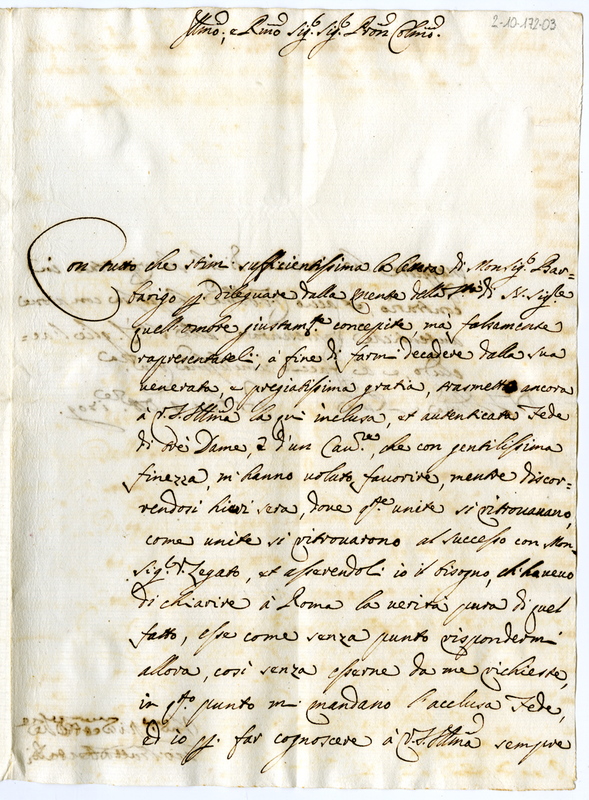 2-10-172-03
Ill.mo, e R.mo Sig.r Sig.r P.ron Col.mo
Con tutto che stimi sufficientissima la lettera di Monsig.r Bar=
barigo p. dileguare dalla mente della S.tà di N. Sig.re
quell'ombre giustam.te concepite, ma falsamente
rappresentateli, à fine di farmi decadere dalla sua
venerata, e pregiatissima gratia, trasmetto ancora
à V.S. Ill.ma la quì inclusa, et autenticata Fede
di trè Dame, e d'un Cau.re, che con gentilissima
finezza, m'hanno voluto favorire, mentre discor=
rendosi hieri sera, dove q.te unite si ritrovavano,
come unite si ritrovarono al successo con Mon=
sig.r Legato, et asserendoli io il bisogno, ch'havevo
di chiarire à Roma la verità pura di quel
fatto, esse come senza punto rispondermi
allora, così senza esserne da me richieste,
in q.to punto mi mandano l'acclusa Fede,
Ed io p. far cognoscere à V.S. Ill.ma sempre